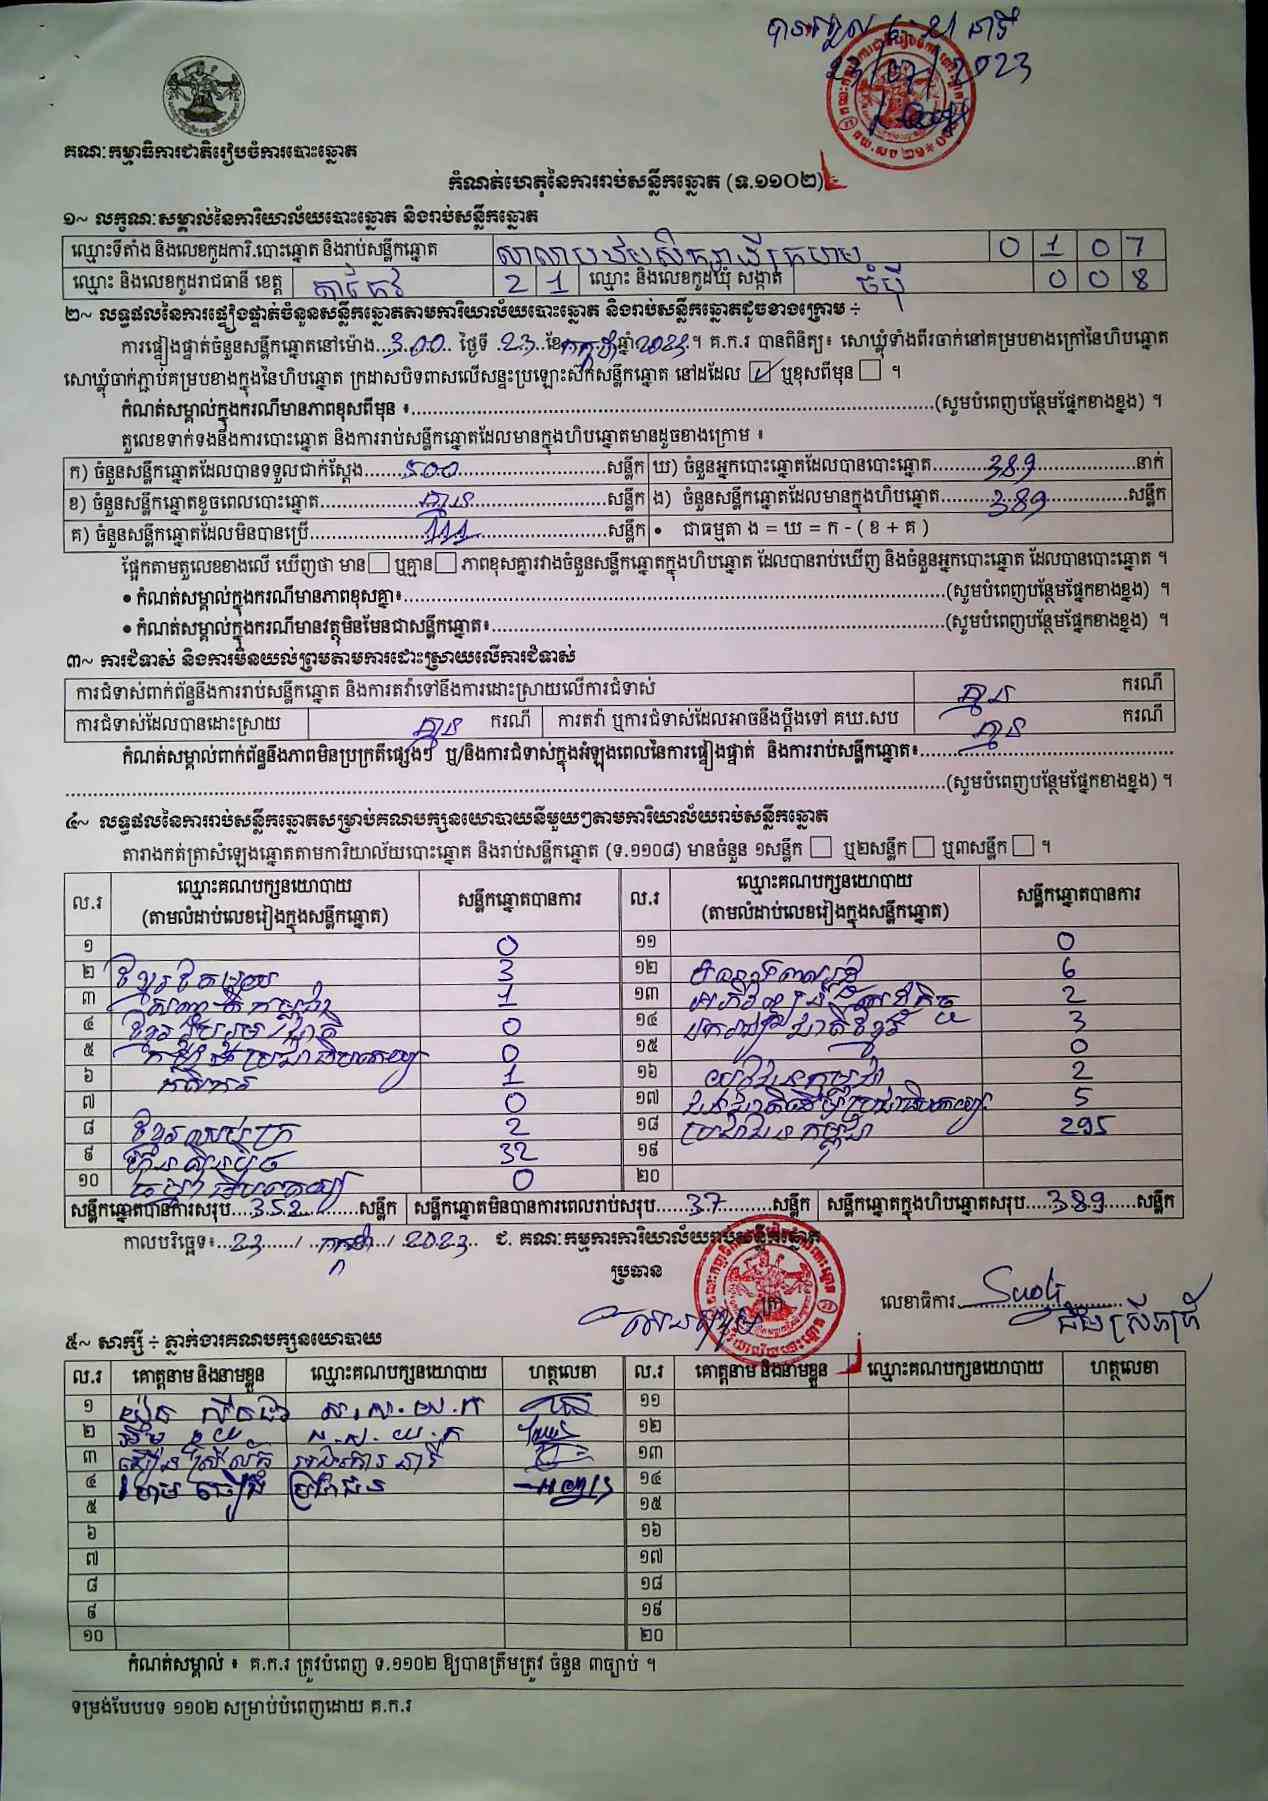 23/07/2023
គណៈកម្មាធិការជាតិរៀបចំការបោះឆ្នោត
កំណត់ហេតុនៃការរាប់សន្លឹកឆ្នោត (ទ.១១០២)
១~ លក្ខណៈសម្គាល់នៃការិយាល័យបោះឆ្នោត និងរាប់សន្លឹកឆ្នោត
ឈ្មោះទីតាំង និងលេខកូដការិ.បោះឆ្នោត និងរាប់សន្លឹកឆ្នោត 0 1 0 7
ឈ្មោះ និងលេខកូដរាជធានី ខេត្ត តាកែវ 2 1 ឈ្មោះ និងលេខកូដឃុំ សង្កាត់ ចំប៉ី 0 0 8
២~ លទ្ធផលនៃការផ្ទៀងផ្ទាត់ចំនួនសន្លឹកឆ្នោតតាមការិយាល័យបោះឆ្នោត និងរាប់សន្លឹកឆ្នោតដូចខាងក្រោម ÷
ការផ្ទៀងផ្ទាត់ចំនួនសន្លឹកឆ្នោតនៅម៉ោង...3:00.. ថ្ងៃទី .23..ខែកក្កដាឆ្នាំ2023.។ គ.ក.រ បានពិនិត្យ៖ សោឃ្លុំទាំងពីរចាក់នៅគម្របខាងក្រៅនៃហិបឆ្នោត
សោឃ្លុំចាក់ភ្ជាប់គម្របខាងក្នុងនៃហិបឆ្នោត ក្រដាសបិទពាសលើសន្ទះប្រឡោះស៊កសន្លឹកឆ្នោត នៅដដែល ☑ ឬខុសពីមុន ☐ ។
កំណត់សម្គាល់ក្នុងករណីមានភាពខុសពីមុន ៖...(សូមបំពេញបន្ថែមផ្នែកខាងខ្នង) ។
តួលេខទាក់ទងនឹងការបោះឆ្នោត និងការរាប់សន្លឹកឆ្នោតដែលមានក្នុងហិបឆ្នោតមានដូចខាងក្រោម ៖
ក) ចំនួនសន្លឹកឆ្នោតដែលបានទទួលជាក់ស្តែង...500...សន្លឹក ឃ) ចំនួនអ្នកបោះឆ្នោតដែលបានបោះឆ្នោត...389...នាក់
ខ) ចំនួនសន្លឹកឆ្នោតខូចពេលបោះឆ្នោត...គ្មាន...សន្លឹក ង) ចំនួនសន្លឹកឆ្នោតដែលមានក្នុងហិបឆ្នោត...389...សន្លឹក
គ) ចំនួនសន្លឹកឆ្នោតដែលមិនបានប្រើ...111...សន្លឹក • ជាធម្មតា ង = ឃ = ក - ( ខ + គ )
ផ្អែកតាមតួលេខខាងលើ ឃើញថា មាន☐ ឬគ្មាន☐ ភាពខុសគ្នារវាងចំនួនសន្លឹកឆ្នោតក្នុងហិបឆ្នោត ដែលបានរាប់ឃើញ និងចំនួនអ្នកបោះឆ្នោត ដែលបានបោះឆ្នោត ។
• កំណត់សម្គាល់ក្នុងករណីមានភាពខុសគ្នា៖...(សូមបំពេញបន្ថែមផ្នែកខាងខ្នង) ។
• កំណត់សម្គាល់ក្នុងករណីមានវត្ថុមិនមែនជាសន្លឹកឆ្នោត៖...(សូមបំពេញបន្ថែមផ្នែកខាងខ្នង) ។
៣~ ការជំទាស់ និងការមិនយល់ព្រមតាមការដោះស្រាយលើការជំទាស់
ការជំទាស់ពាក់ព័ន្ធនឹងការរាប់សន្លឹកឆ្នោត និងការតវ៉ាទៅនឹងការដោះស្រាយលើការជំទាស់ គ្មាន ករណី
ការជំទាស់ដែលបានដោះស្រាយ គ្មាន ករណី ការតវ៉ា ឬការជំទាស់ដែលអាចនឹងប្តឹងទៅ គឃ.សប គ្មាន ករណី
កំណត់សម្គាល់ពាក់ព័ន្ធនឹងភាពមិនប្រក្រតីផ្សេងៗ ឬ/និងការជំទាស់ក្នុងអំឡុងពេលនៃការផ្ទៀងផ្ទាត់ និងការរាប់សន្លឹកឆ្នោត៖...
...(សូមបំពេញបន្ថែមផ្នែកខាងខ្នង) ។
៤~ លទ្ធផលនៃការរាប់សន្លឹកឆ្នោតសម្រាប់គណបក្សនយោបាយនីមួយៗតាមការិយាល័យរាប់សន្លឹកឆ្នោត
តារាងកត់ត្រាសំឡេងឆ្នោតតាមការិយាល័យបោះឆ្នោត និងរាប់សន្លឹកឆ្នោត (ទ.១១០៨) មានចំនួន ១សន្លឹក ☐ ឬ២សន្លឹក ☐ ឬ៣សន្លឹក ☐ ។
ល.រ ឈ្មោះគណបក្សនយោបាយ (តាមលំដាប់លេខរៀងក្នុងសន្លឹកឆ្នោត) សន្លឹកឆ្នោតបានការ ល.រ ឈ្មោះគណបក្សនយោបាយ (តាមលំដាប់លេខរៀងក្នុងសន្លឹកឆ្នោត) សន្លឹកឆ្នោតបានការ
១ 0 ១១ 0
២ ខ្មែរតែមួយ 3 ១២ 6
៣ 1 ១៣ 2
៤ ខ្មែររួបរួមជាតិ 0 ១៤ 3
៥ 0 ១៥ 0
៦ កសិករ 1 ១៦ 2
៧ 0 ១៧ 5
៨ 2 ១៨ ប្រជាជនកម្ពុជា 295
៩ ហ្វ៊ុនស៊ិនប៉ិច 32 ១៩
១០ 0 ២០
សន្លឹកឆ្នោតបានការសរុប...352...សន្លឹក សន្លឹកឆ្នោតមិនបានការពេលរាប់សរុប...37...សន្លឹក សន្លឹកឆ្នោតក្នុងហិបឆ្នោតសរុប...389...សន្លឹក
កាលបរិច្ឆេទ៖..23..../..កក្កដា../..2023.. ជ. គណៈកម្មការការិយាល័យរាប់សន្លឹកឆ្នោត
ប្រធាន
លេខាធិការ
៥~ សាក្សី ÷ ភ្នាក់ងារគណបក្សនយោបាយ
ល.រ គោត្តនាម និងនាមខ្លួន ឈ្មោះគណបក្សនយោបាយ ហត្ថលេខា ល.រ គោត្តនាម និងនាមខ្លួន ឈ្មោះគណបក្សនយោបាយ ហត្ថលេខា
១ ១១
២ ១២
៣ ១៣
៤ ប្រជាជន ១៤
៥ ១៥
៦ ១៦
៧ ១៧
៨ ១៨
៩ ១៩
១០ ២០
កំណត់សម្គាល់ ៖ គ.ក.រ ត្រូវបំពេញ ទ.១១០២ ឱ្យបានត្រឹមត្រូវ ចំនួន ៣ច្បាប់ ។
ទម្រង់បែបបទ ១១០២ សម្រាប់បំពេញដោយ គ.ក.រ